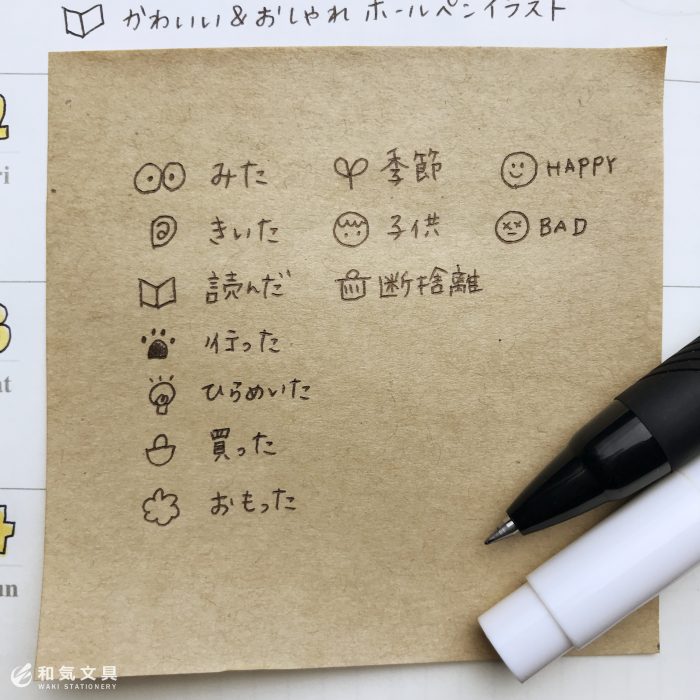 かわいい&おしゃれ ボールペンイラスト
みた 季節 HAPPY
きいた 子供 BAD
読んだ 断捨離
行った
ひらめいた
買った
おもった
2
ri
3
at
4
un
和気文具
WAKI STATIONERY